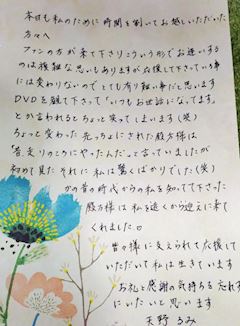 本日も私のために時間を割いてお越しいただいた
方々へ
ファンの方が来て下さりこういう形でお逢いする
のは複雑な思いもありますが応援して下さっている事
には変わりないのでとても有り難い事だと思います
DVDを観て下さって「いつもお世話になってます」
とか言われるとちょっと笑ってしまいます(笑)
ちょっと変わった売っ子にされた殿方様は
「昔、走りのころにやったんだ。」と言っていましたが
初めて見たそれに私は驚くばかりでした(笑)
の昔の時代からの私を知ってて下さった
殿方様は私を遠くから迎えに来て
くれました。
皆の様に支えられて応援して
いただいて私は生きています
お礼と感謝の気持ちを忘れず
にいたいと思います
天野るみ